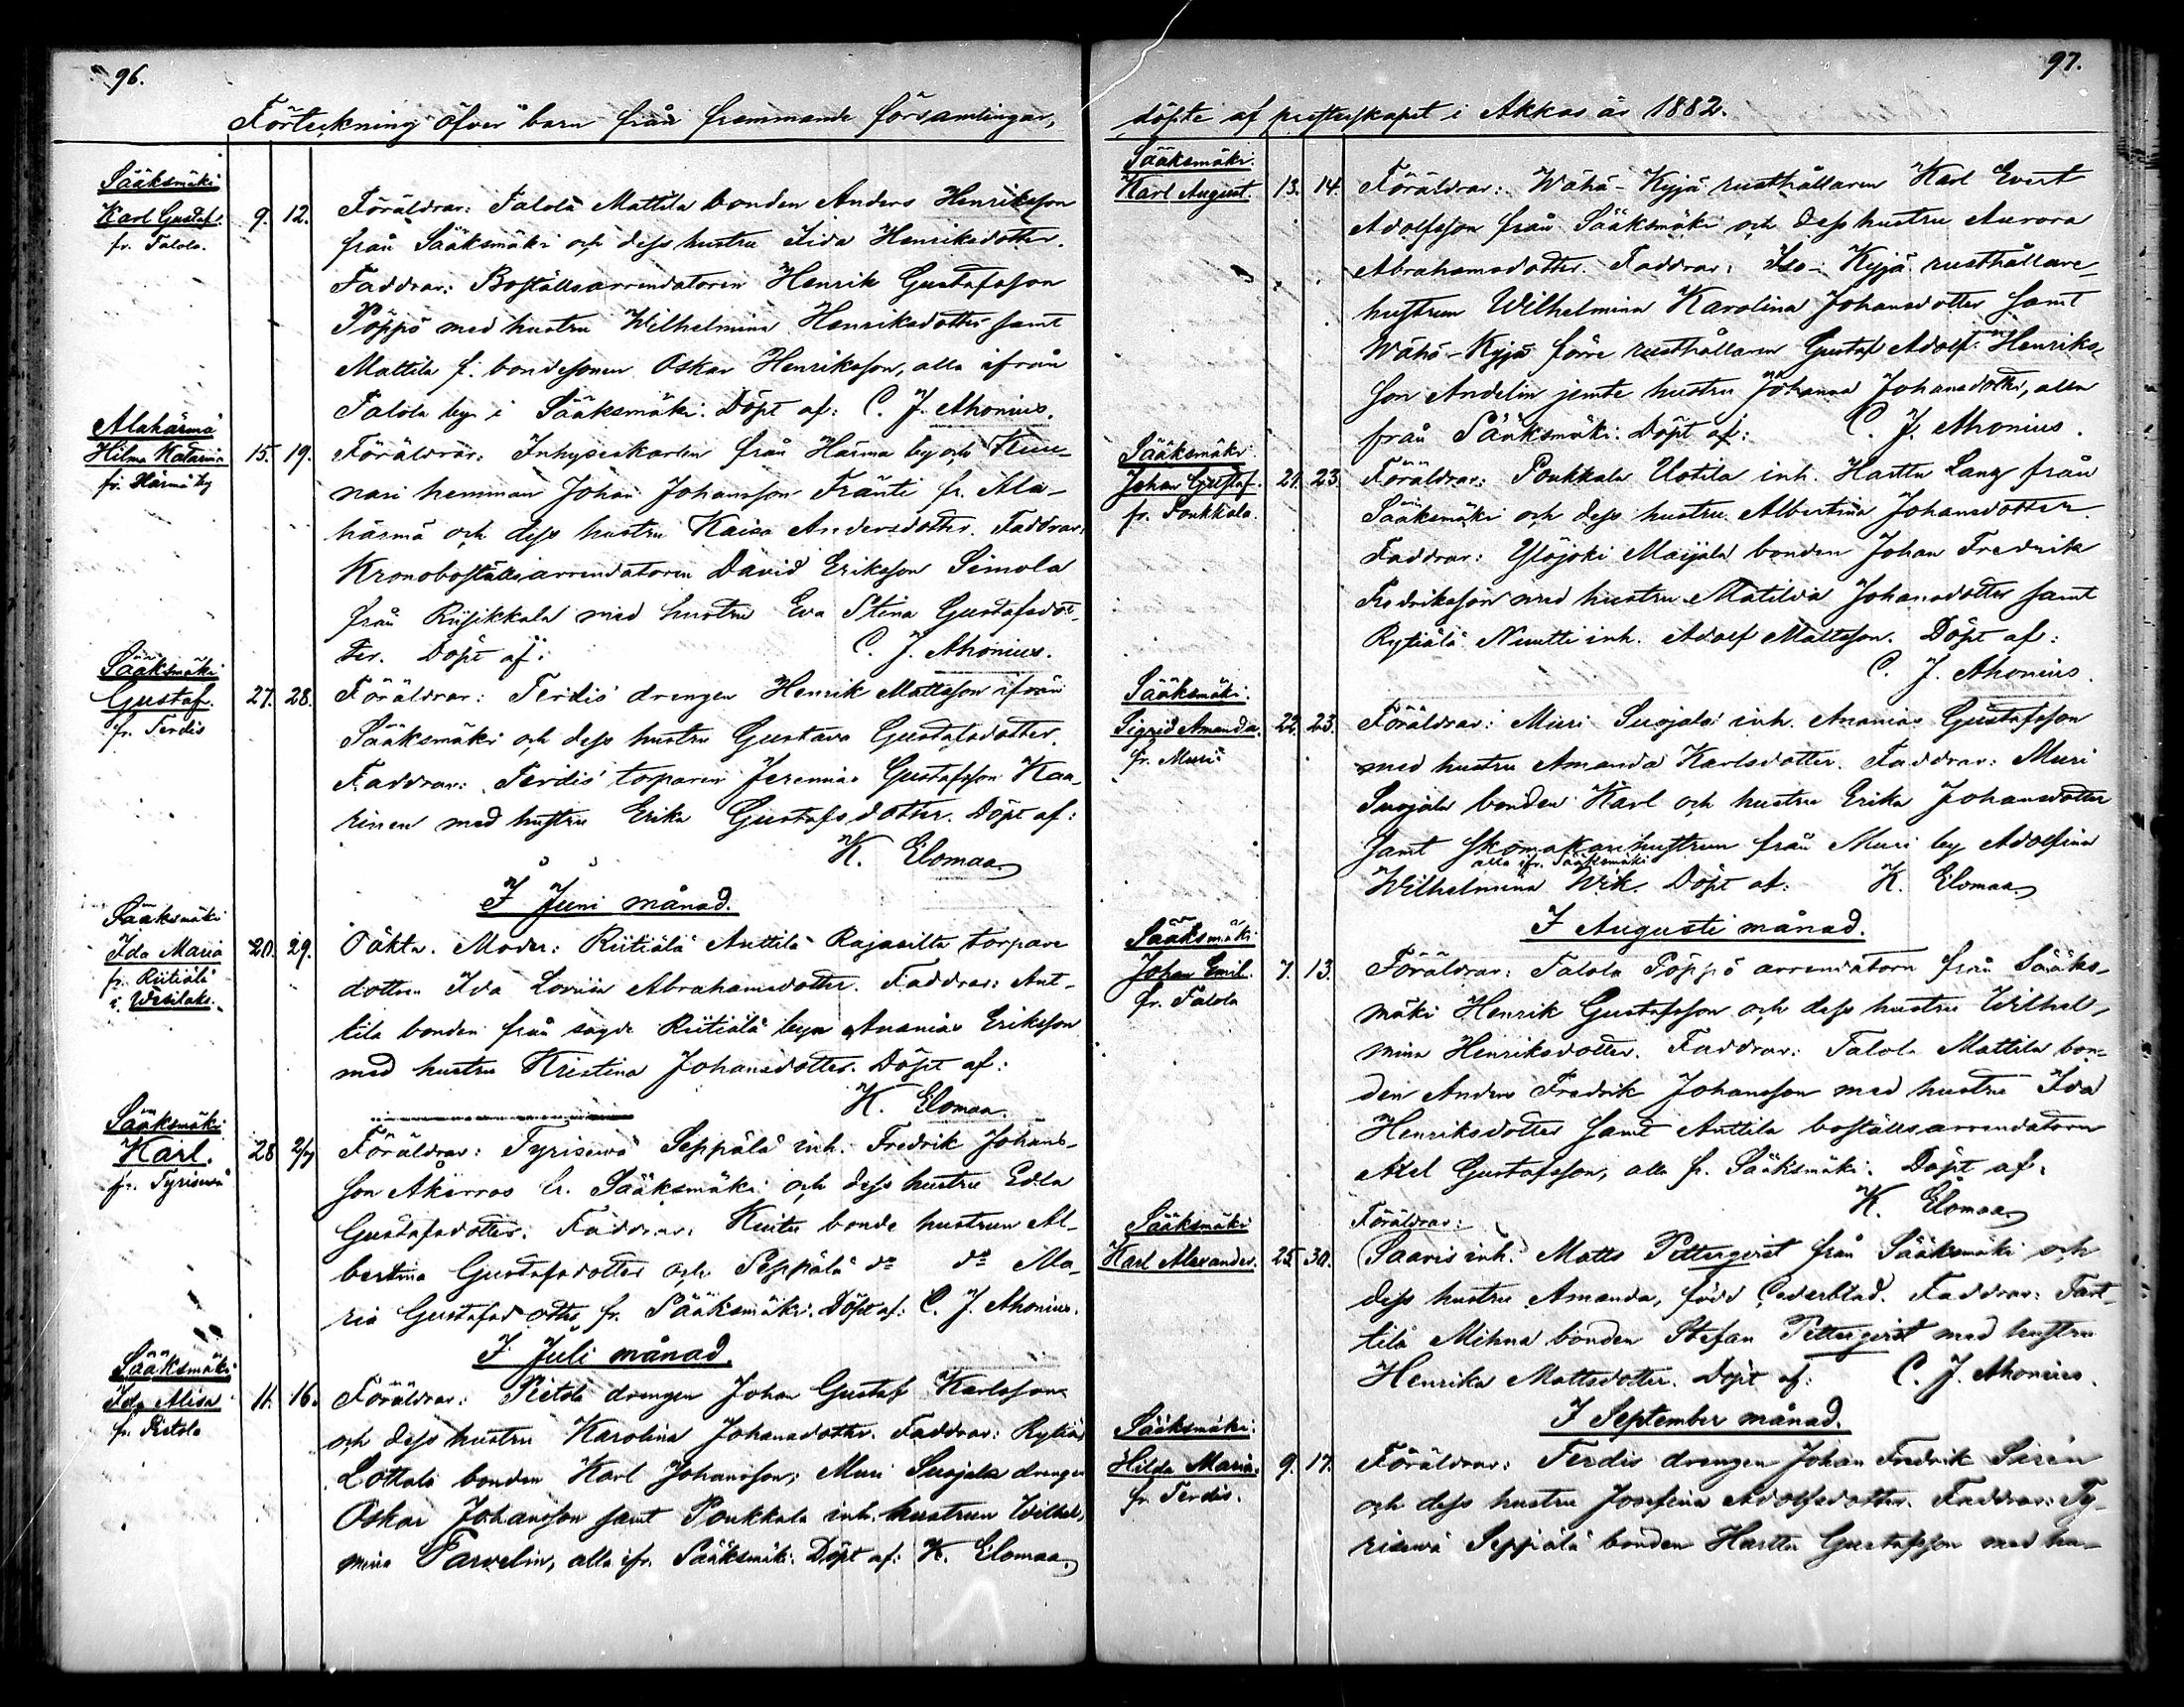 96.
Förteckning öfver barn från frammande församlingar,
Sääksmäki
Karl Gustaf.
fr. Talola.
9. 12.
Föräldrar: Talola Mattila bonden Anders Henriksson
från Sääksmäki och dess hustru Iida Henriksdotter.
Faddrar: Boställsarrendatoren Henrik Gustafsson
Pöppö med hustru Wilhelmina Henriksdotter samt
Mattila f. bondesonen Oskar Henriksson, alla ifrån
Talola by i Sääksmäki. Döpt af: C. J. Ahonius.
Alahärmä
Hilma Katarina
fr. Härmä by
15. 19.
Föräldrar: Inhysekarlen från Härmä by och
nari hemman Johan Johansson Fränti fr. Ala-
härmä och dess hustru Kaisa Andersdotter. Faddrar:
Kronoboställsarrendatoren David Eriksson Simola
från Riisikkala med hustru Eva Stina Gustafsdot-
ter. Döpt af: C. J. Ahonius.
Sääksmäki
Gustaf.
fr. Terdis
27. 28.
Föräldrar: Terdis drengen Henrik Mattsson ifrån
Sääksmäki och dess hustru Gustava Gustafsdotter.
Faddrar: Terdis torparen Jeremias Gustafsson Kaa-
rinen med hustru Erika Gustafsdotter. Döpt af:
K. Elomaa
I Juni månad.
Sääksmäki
Ida Maria
fr. Riitiälä
i Wesilaks.
20. 29.
Oäkta. Moder: Riitiälä Anttila Rajasilta torpare
dottren Ida Lovisa Abrahamsdotter. Faddrar: Ant-
tila bonden från sagde Riitiälä byn Ananias Eriksson
med hustru Kristina Johansdotter. Döpt af:
K. Elomaa.
Sääksmäki
Karl.
fr. Tyrisevä
28 2/7
Föräldrar: Tyrisevä Seppälä inh. Fredrik Johans-
son Åkerros fr. Sääksmäki och dess hustru Edla
Gustafsdotter. Faddrar: Knuts bonde hustrun Al-
bertina Gustafsdotter och Seppälä do do Ma-
ria Gustafsdotter fr. Sääksmäki. Döpt af: C. J. Ahonius.
I Juli månad.
Sääksmäki
Ida Alisa
fr. Pietola
11. 16.
Föräldrar: Pietola drengen Johan Gustaf Karlsson
och dess hustru Karolina Johansdotter. Faddrar:
Lottala bonden Karl Johansson, Muri Suojala drengen
Oskar Johansson samt Poukkala inh. hustrun Wilhel-
mina Tarvelin, alla ifr. Sääksmäki. Döpt af: K. Elomaa
97.
döpte af presterskapet i Akkas år 1882.
Sääksmäki.
Karl August.
13. 14.
Föräldrar: Wähä-Kyjä rusthållaren Karl Evert
Adolfsson från Sääksmäki och dess hustru Aurora
Abrahamsdotter. Faddrar: Iso-Kyjä rusthållare-
hustrun Wilhelmina Karolina Johansdotter samt
Wähä-Kyjä förre rusthållaren Gustaf Adolf Henriks-
son Andelin jemte hustru Johanna Johansdotter, alla
från Sääksmäki. Döpt af: C. J. Ahonius.
Sääksmäki
Johan Gustaf.
fr. Poukkala.
21. 23.
Föräldrar: Poukkala Uotila inh. Harttu Lang från
Sääksmäki och dess hustru Albertina Johansdotter
Faddrar: Ylöjoki Maijala bonden Johan Fredrik
Fredriksson med hustru Matilda Johansdotter samt
Rytiälä Nuutti inh. Adolf Mattsson. Döpt af:
C. J. Ahonius.
Sääksmäki.
Sigrid Amanda.
fr. Muri
22. 23.
Föräldrar: Muri Suojala inh. Ananias Gustafsson
med hustru Amanda Karlsdotter. Faddrar: Muri
Suojala bonden Karl och hustru Erika Johansdotter
samt skomakarehustrun från Muri by Adolfina
alla ifr. Sääksmäki
Wilhelmina Wik. Döpt af: K. Elomaa
I Augusti månad.
Sääksmäki
Johan Emil.
fr. Talola
7. 13.
Föräldrar: Talola Pöppö arrendatorn från Sääks-
mäki Henrik Gustafsson och dess hustru Wilhel-
mina Henriksdotter. Faddrar: Talola Mattila bon-
den Anders Fredrik Johansson med hustru Ida
Henriksdotter samt Anttila boställsarrendatorn
Axel Gustafsson, alla fr. Sääksmäki. Döpt af:
K. Elomaa
Sääksmäki
Karl Alexander.
25. 30.
Föräldrar:
Saaris inh. Matts Pettergvist från Sääksmäki och
dess hustru Amanda, född Cederblad. Faddrar: Tart-
tila Mihna bonden Stefan Pettergvist med hustru
Henrika Mattsdotter. Döpt af: C. J. Ahonius.
I September månad.
Sääksmäki.
Hilda Maria.
fr. Terdis.
9. 17.
Föräldrar: Terdis drengen Johan Fredrik Sirén
och dess hustru Josefina Adolfsdotter. Faddrar: Ty-
risevä Seppälä bonden Harttu Gustafsson med hu-